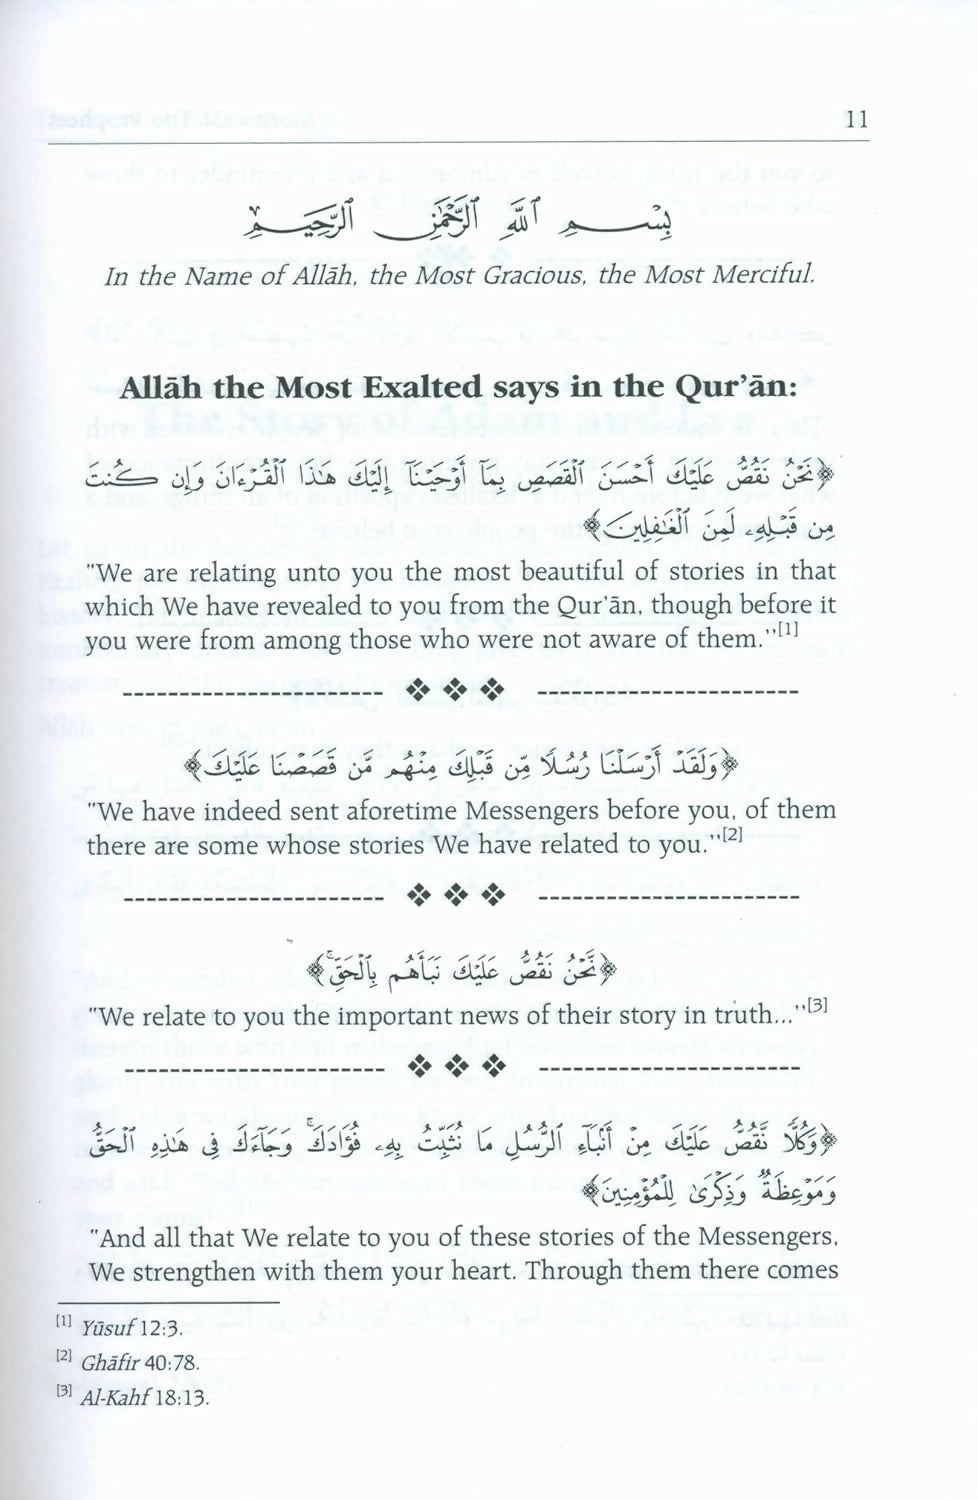 11
بِسْمِ اللَّهِ الرَّحْمَٰنِ الرَّحِيمِ
In the Name of Allāh, the Most Gracious, the Most Merciful.
Allāh the Most Exalted says in the Qur’ān:
﴿نَحْنُ نَقُصُّ عَلَيْكَ أَحْسَنَ ٱلْقَصَصِ بِمَآ أَوْحَيْنَآ إِلَيْكَ هَٰذَا ٱلْقُرْءَانَ وَإِن كُنتَ
مِن قَبْلِهِۦ لَمِنَ ٱلْغَٰفِلِينَ﴾
"We are relating unto you the most beautiful of stories in that
which We have revealed to you from the Qur’ān, though before it
you were from among those who were not aware of them."[1]
﴿وَلَقَدْ أَرْسَلْنَا رُسُلًا مِّن قَبْلِكَ مِنْهُم مَّن قَصَصْنَا عَلَيْكَ﴾
"We have indeed sent aforetime Messengers before you, of them
there are some whose stories We have related to you."[2]
﴿نَّحْنُ نَقُصُّ عَلَيْكَ نَبَأَهُم بِٱلْحَقِّ ۚ﴾
"We relate to you the important news of their story in truth..."[3]
﴿وَكُلًّا نَّقُصُّ عَلَيْكَ مِنْ أَنۢبَآءِ ٱلرُّسُلِ مَا نُثَبِّتُ بِهِۦ فُؤَادَكَ ۚ وَجَآءَكَ فِى هَٰذِهِ ٱلْحَقُّ
وَمَوْعِظَةٌ وَذِكْرَىٰ لِلْمُؤْمِنِينَ﴾
"And all that We relate to you of these stories of the Messengers,
We strengthen with them your heart. Through them there comes
[1] Yūsuf 12:3.
[2] Ghāfir 40:78.
[3] Al-Kahf 18:13.